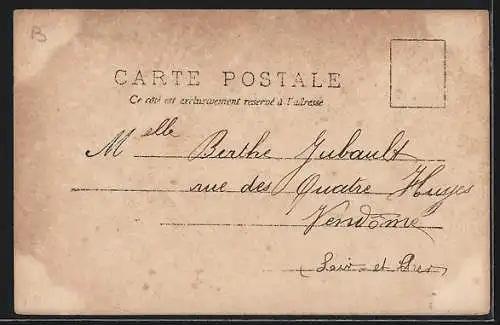 B
CARTE POSTALE
Ce côté est exclusivement réservé à l'adresse
Melle Berthe Jubault
rue des Quatre Huyes
Vendôme
(Loir-et-Cher)